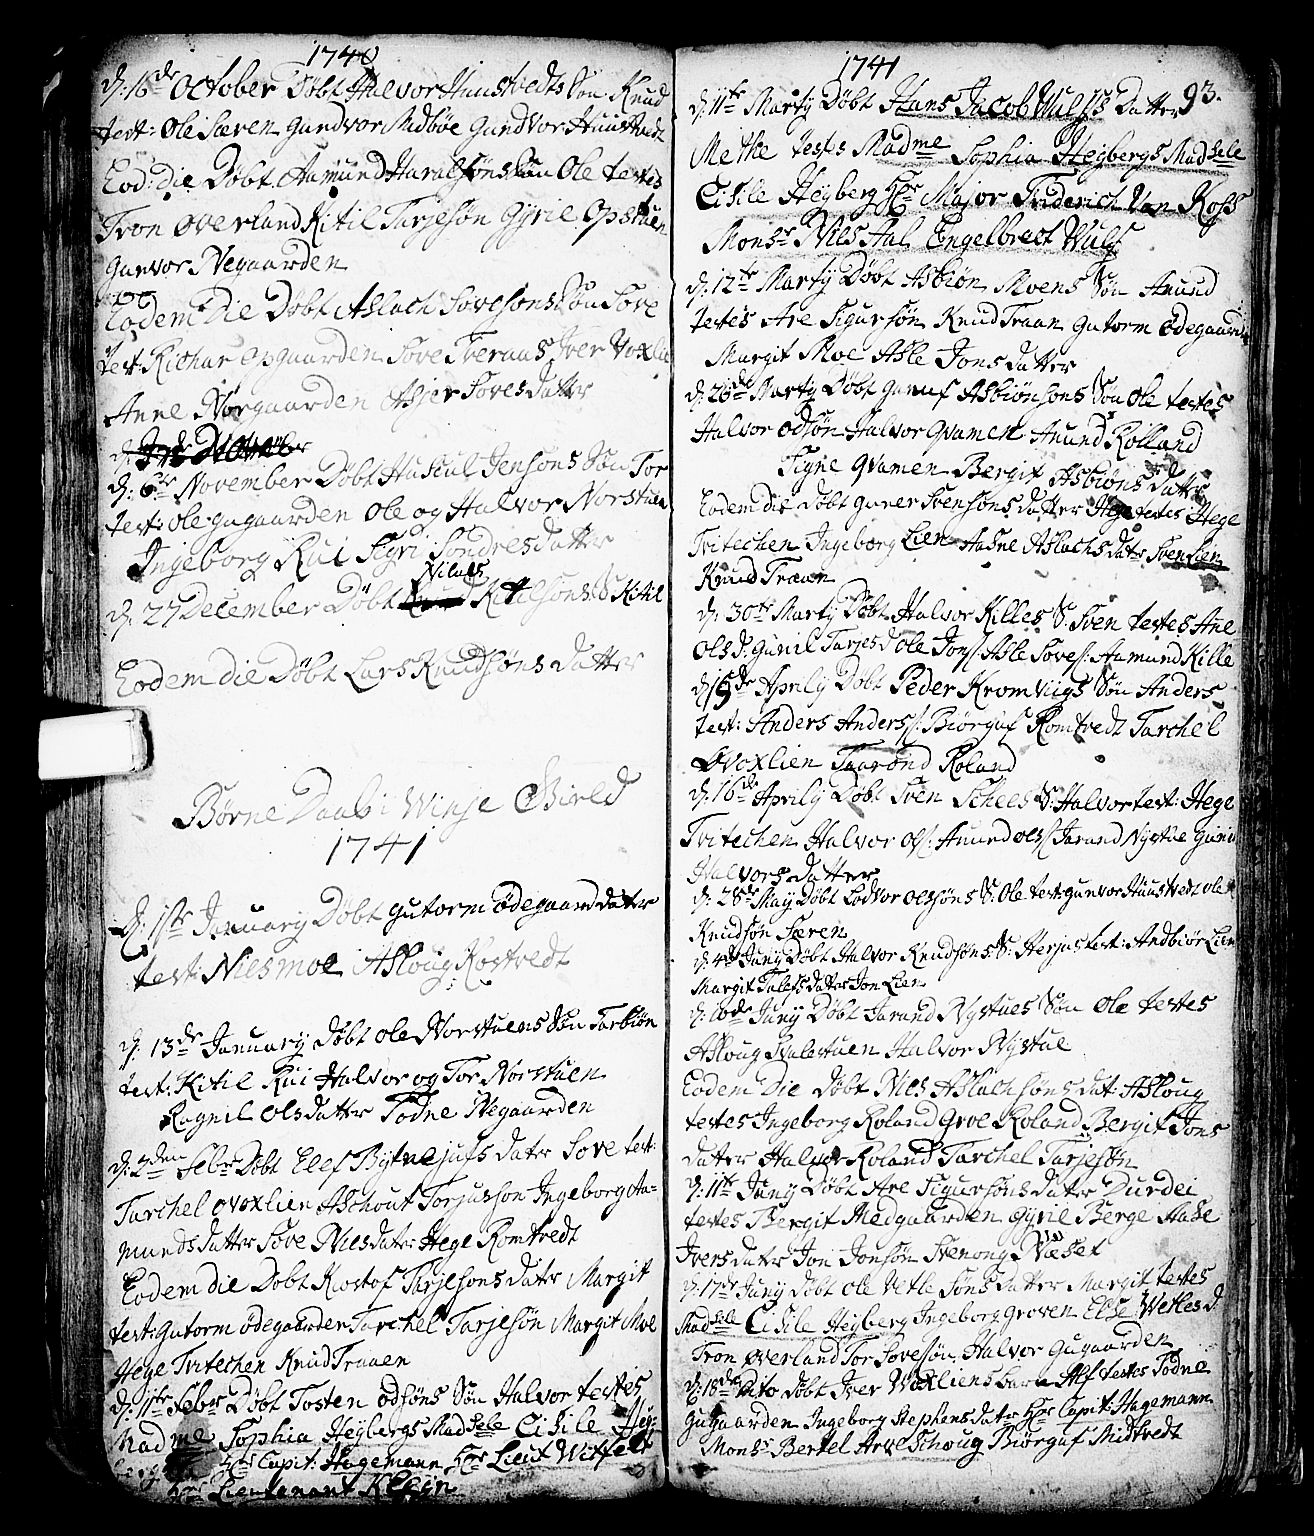 1740
d. 16de October Døbt Halvor Huustvedts Søn Knud
test: Ole Særen Gundvor Midbøe Gundvor Huustvedt
Eod: die Døbt Aamund Haralsøns Søn Ole testes
Tron Øverland Kitil Tarjesøn Gyrie Opstuen
Gunvor Negaarden
Eodem Die Døbt Aslach Sovesøns Søn Sove
test: Richar Opgaarden Sove Tveraas Iver Voxlie
Anne Nørgaarden Asjer Sovesdatter
d. 6te November Døbt Huscul Jensons Søn Tor
test: Ole Gugaarden Ole og Halvor Norstuen
Ingeborg Rui Sigri Sondresdatter
Nikuls
d. 27 December Døbt Kitilsøns S: Kitil
Eodem die Døbt Lars Knudsøns datter
Børne Daab i Winje Gield
1741
d. 1ste January Døbt Gutorm Ødegaard dater
test: Niesmoe Asloug Rostvedt
d. 13de January Døbt Ole Norstuens Søn Tarbiøn
test: Kitil Rui Halvor og Tor Norstuen
Ragnil Olsdatter Todne Negaarden
d. 2den Febr Døbt Elef Bytvejufs dater Sove test:
Tarchel Ovoxlien Aschout Torjusson Ingeborg Aa-
munds datter Sove Nies dater Hege Romtvedt
Eodem die Døbt Rostof Tarjesons dater Margit
test: Gutorm Ødegaarden Tarchel Tarjesøn Margit Moe
Hege Tvitechen Knud Traaen
d. 11te Febr Døbt Tosten Odsøns Søn Halvor testes
Madme Sophia Heybergs Madsele Cisile Hey-
berg Hr Capit: Hagemann Hr Lieut Wiffelt
Hr Lieutenant Klein
1741
93.
d. 11te Marty Døbt Hans Jacob Wulfs Datter
Methe testes Madme Sophia Heybergs Madsele
Cisile Heyberg Hr Major Friderich Van Ross
Monsr Nies Aal Engelbrect Wulf
d. 12te Marty Døbt Asbiøn Moens Søn Anund
testes Are Sigursøn Knud Traan Gutorm Ødegaarden
Margit Moe Asle Jonsdatter
d. 26de Marty Døbt Gunuf Asbiønsons Søn Ole testes
Halvor Odsøn Halvor Qvamen Anund Rolland
Signe Qvamen Bergit Asbiøns datter
Eodem die Døbt Guner Svensøns datter Hege testes Hege
Tvitechen Ingeborg Lien Aasne Aslachs dater Sven Lien
Knud Traan
d. 30te Marty Døbt Halvor Killes S: Sven testes Ane
Olsd: Gunil Tarjesd Ole Jons: Asle Soves: Aamund Kille
d. 9de Aprily Døbt Peder Kromviigs Søn Anders
test: Anders Anderss: Biørguf Romtvedt Tarchel
Ovoxlien Taarond Roland
d. 16de Aprily Døbt Sven Schees S: Halvor test: Hege
Tvitechen Halvor Ols: Anund Olss: Jarand Nystue Guni
Halvors datter
d. 28de May Døbt Lodvor Olssøns S: Ole test: Gunvor Huustvedt Ole
Knudsøn Særen
d. 4de Juny Døbt Halvor Knudsøns S: Herjus test: Andbiør Lien
Margit Talefsdater Jon Lien
d. 10de Juny Døbt Jarand Nystues Søn Ole testes
Asloug Svalestuen Halvor Nystue
Eodem Die Døbt Nies Aslachsøns dat: Asloug
testes Ingeborg Roland Groe Roland Bergit Jons
dater Halvor Roland Tarchel Tarjesøn
d. 11te Juny Døbt Are Sigursøns dater Durdei
testes Bergit Medgaarden Gyrie Berge Aase
Iversdater Jon Jonsøn Svenong Næset
d. 17de Juny Døbt Ole Vetlesøns datter Margit testes
Madsele Cisile Heyberg Ingeborg Groven Else Wetlesd
Tron Øverland Tor Sovesøn Halvor Gugaarden
d. 18de dito Døbt Iver Woxliens barn Alf testes Todne
Gugaarden Ingeborg Stephensdater Hr Capit: Hagemann
Monsr Bertel Arve Schoug Biørguf Midtvedt